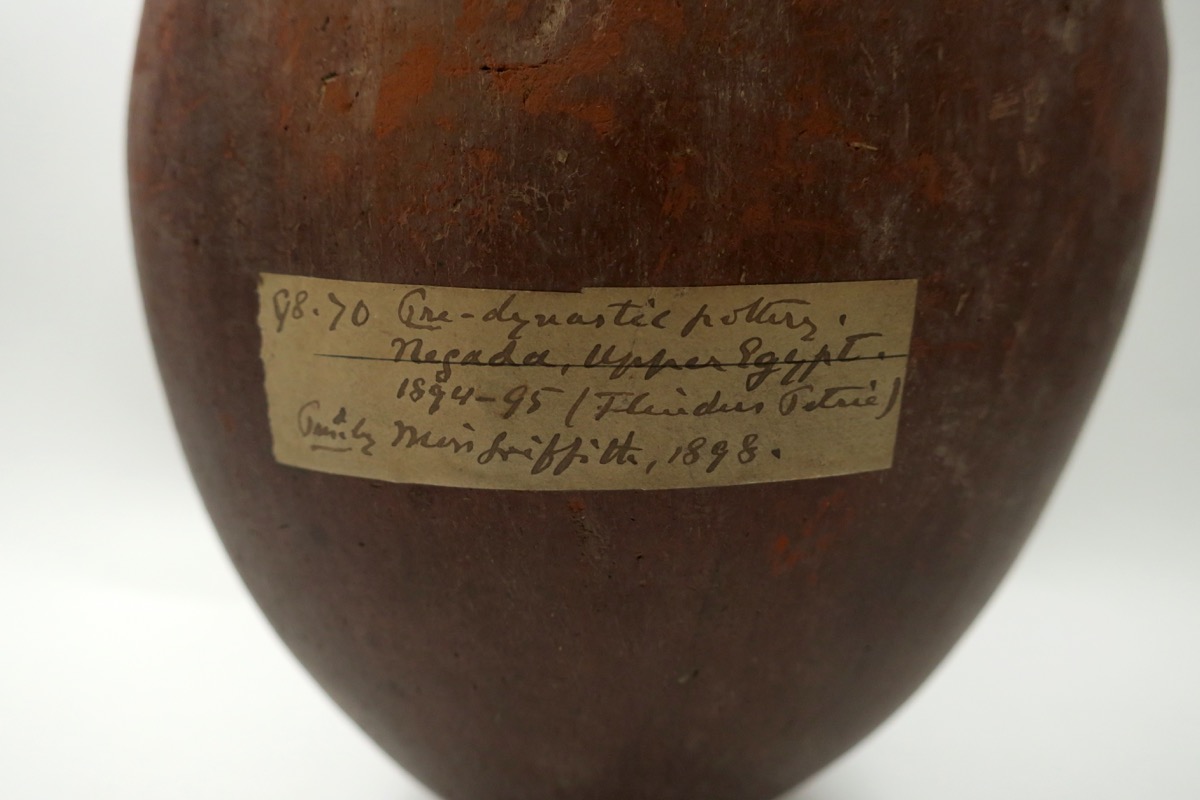 98.70 Pre-dynastic pottery.
Negada, Upper Egypt.
1894-95 (Flinders Petrie)
by Miss Griffith, 1898.